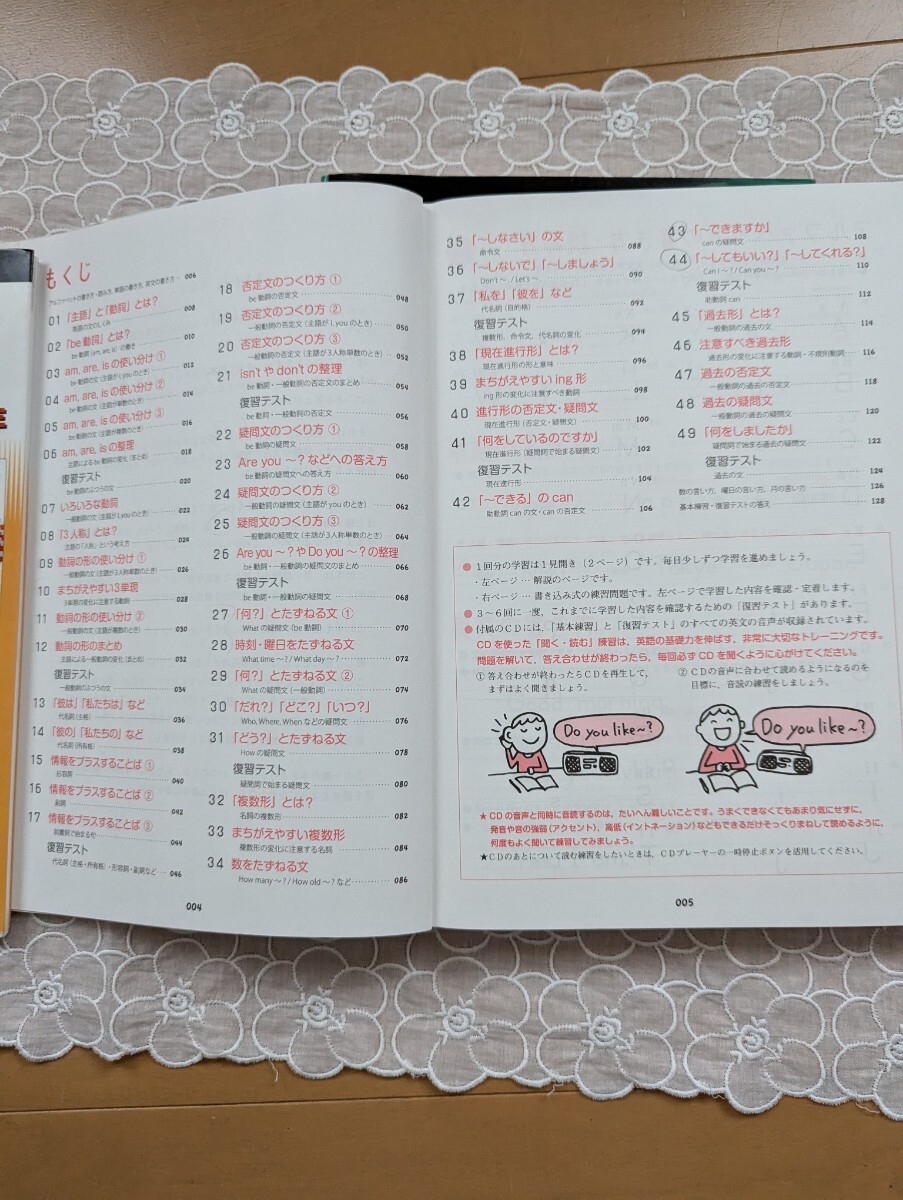 もくじ
アルファベットの書き方・読み方, 単語の書き方, 英文の書き方 … 006
01 「主語」と「動詞」とは?
英語の文のしくみ 008
02 「be動詞」とは?
be 動詞 (am, are, is) の働き 010
03 am, are, is の使い分け ①
be動詞の文 (主語が I, you のとき) 012
04 am, are, is の使い分け ②
be動詞の文 (主語が単数のとき) 014
05 am, are, is の使い分け ③
be動詞の文 (主語が複数のとき) 016
06 am, are, is の整理
主語によるbe 動詞の変化 (まとめ) 018
復習テスト
be 動詞のふつうの文 020
07 いろいろな動詞
一般動詞の文 (主語が I, you のとき) 022
08 「3人称」とは?
主語の「人称」という考え方 024
09 動詞の形の使い分け ①
一般動詞の文 (主語が3人称単数のとき) 026
10 まちがえやすい3単現
3単現の変化に注意する動詞 028
11 動詞の形の使い分け ②
一般動詞の文 (主語が複数のとき) 030
12 動詞の形のまとめ
主語による一般動詞の変化 (まとめ) 032
復習テスト
一般動詞のふつうの文 034
13 「彼は」「私たちは」など
代名詞 (主格) 036
14 「彼の」「私たちの」など
代名詞 (所有格) 038
15 情報をプラスすることば ①
形容詞 040
16 情報をプラスすることば ②
副詞 042
17 情報をプラスすることば ③
前置詞で始まる句 044
復習テスト
代名詞 (主格・所有格)・形容詞・副詞など 046
18 否定文のつくり方 ①
be 動詞の否定文 048
19 否定文のつくり方 ②
一般動詞の否定文 (主語が I, you のとき) 050
20 否定文のつくり方 ③
一般動詞の否定文 (主語が3人称単数のとき) 052
21 isn't や don't の整理
be 動詞・一般動詞の否定文のまとめ 054
復習テスト
be 動詞・一般動詞の否定文 056
22 疑問文のつくり方 ①
be 動詞の疑問文 058
23 Are you ～? などへの答え方
be 動詞の疑問文への答え方 060
24 疑問文のつくり方 ②
一般動詞の疑問文 (主語が you のとき) 062
25 疑問文のつくり方 ③
一般動詞の疑問文 (主語が3人称単数のとき) 064
26 Are you ～? や Do you ～? の整理
be 動詞・一般動詞の疑問文のまとめ 066
復習テスト
be 動詞・一般動詞の疑問文 068
27 「何?」とたずねる文 ①
What の疑問文 (be 動詞) 070
28 時刻・曜日をたずねる文
What time ～? / What day ～? 072
29 「何?」とたずねる文 ②
What の疑問文 (一般動詞) 074
30 「だれ?」「どこ?」「いつ?」
Who, Where, When などの疑問文 076
31 「どう?」とたずねる文
How の疑問文 078
復習テスト
疑問詞で始まる疑問文 080
32 「複数形」とは?
名詞の複数形 082
33 まちがえやすい複数形
複数形の変化に注意する名詞 084
34 数をたずねる文
How many ～? / How old ～? など 086
004
35 「～しなさい」の文
命令文 088
36 「～しないで」「～しましょう」
Don't ～. / Let's ～. 090
37 「私を」「彼を」など
代名詞 (目的格) 092
復習テスト
複数形、命令文、代名詞の変化 094
38 「現在進行形」とは?
現在進行形の形と意味 096
39 まちがえやすい ing 形
ing 形の変化に注意すべき動詞 098
40 進行形の否定文・疑問文
現在進行形 (否定文・疑問文) 100
41 「何をしているのですか」
現在進行形 (疑問詞で始まる疑問文) 102
復習テスト
現在進行形 104
42 「～できる」の can
助動詞 can の文・can の否定文 106
43 「～できますか」
can の疑問文 108
44 「～してもいい?」「～してくれる?」
Can I ～? / Can you ～? 110
復習テスト
助動詞 can 112
45 「過去形」とは?
一般動詞の過去の文 114
46 注意すべき過去形
過去形の変化に注意する動詞・不規則動詞 116
47 過去の否定文
一般動詞の過去の否定文 118
48 過去の疑問文
一般動詞の過去の疑問文 120
49 「何をしましたか」
疑問詞で始まる過去の疑問文 122
復習テスト
過去の文 124
数の言い方, 曜日の言い方, 月の言い方 126
基本練習・復習テストの答え 128
● 1回分の学習は1見開き (2ページ) です。毎日少しずつ学習を進めましょう。
・左ページ … 解説のページです。
・右ページ … 書き込み式の練習問題です。左ページで学習した内容を確認・定着します。
● 3～6回に一度、これまでに学習した内容を確認するための「復習テスト」があります。
● 付属のCDには、「基本練習」と「復習テスト」のすべての英文の音声が収録されています。
CDを使った「聞く・読む」練習は、英語の基礎力を伸ばす、非常に大切なトレーニングです。
問題を解いて、答え合わせが終わったら、毎回必ずCDを聞くように心がけてください。
① 答え合わせが終わったらCDを再生して、
まずはよく聞きましょう。
② CDの音声に合わせて読めるようになるのを
目標に、音読の練習をしましょう。
Do you like~?
Do you like~?
★ CDの音声と同時に音読するのは、たいへん難しいことです。うまくできなくてもあまり気にせずに、
発音や音の強弱 (アクセント)、高低 (イントネーション) などもできるだけそっくりまねして読めるように、
何度もよく聞いて練習してみましょう。
★CDのあとについて読む練習をしたいときは、CDプレーヤーの一時停止ボタンを活用してください。
005